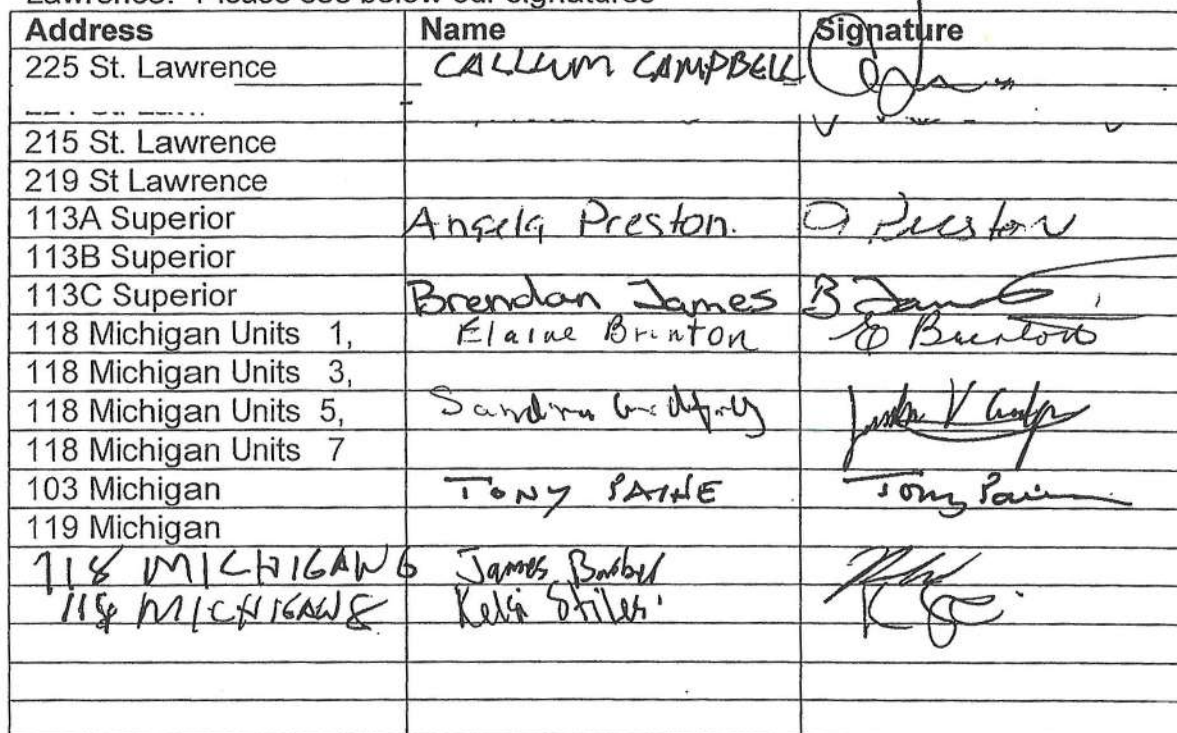 Lawrence. Please see below our signatures
Address Name Signature
225 St. Lawrence CALLUM CAMPBELL
215 St. Lawrence
219 St Lawrence
113A Superior Angela Preston. A Preston
113B Superior
113C Superior Brendan James B James
118 Michigan Units 1, Elaine Brinton E Brinton
118 Michigan Units 3,
118 Michigan Units 5, Sandra
118 Michigan Units 7
103 Michigan TONY PAINE Tony Paine
119 Michigan
118 MICHIGAN 6 James
118 MICHIGAN 8 Stiles